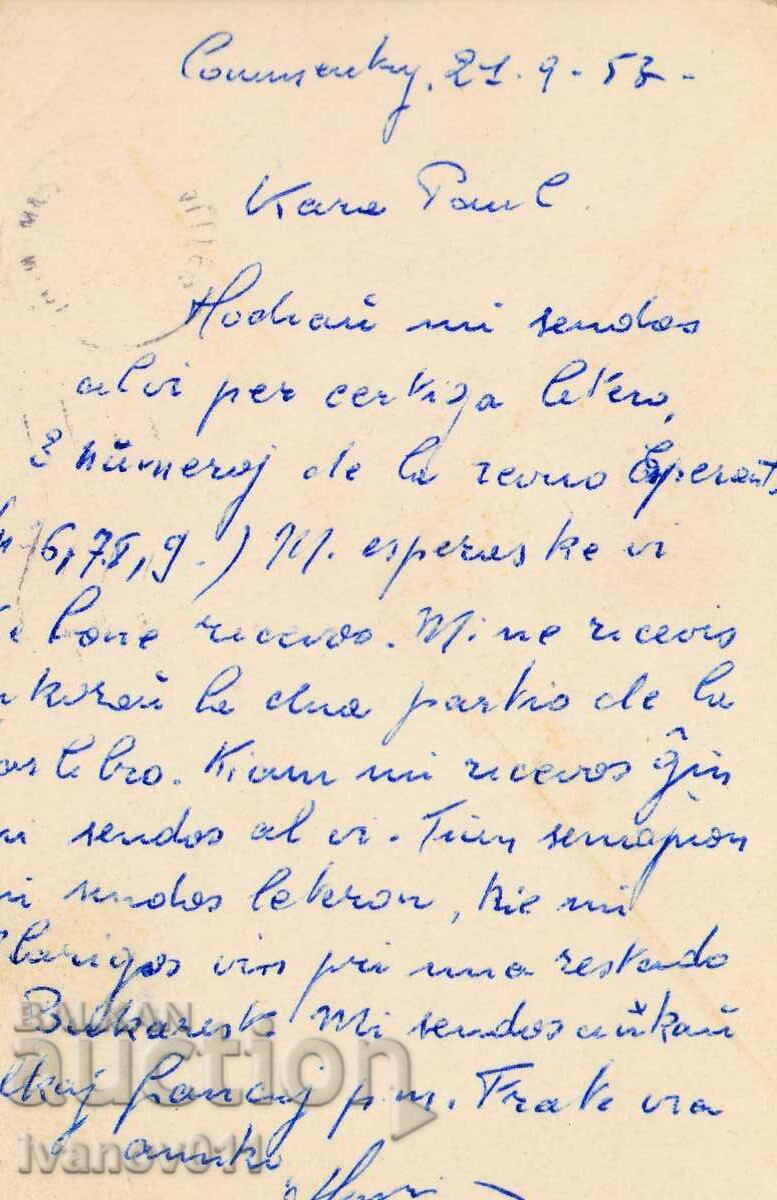 Commentry, 21-9-57-
Kara Paul.
Hodiaŭ mi sendos
al vi per certiga letero,
3 numeroj de la revuo Esperanto
6, 7-8, 9.) Mi esperas ke vi
bone ricevos. Mi ne ricevis
ankoraŭ la dua partio de la
libro. Kiam mi ricevos ĝin
mi sendos al vi. Tiun semajnon
mi sendos leteron, kie mi
klarigos vin pri mia restado
Bukarest. Mi sendos ankaŭ
francaj p.m. Frate via
amiko
BALKAN
auction
ivanov011